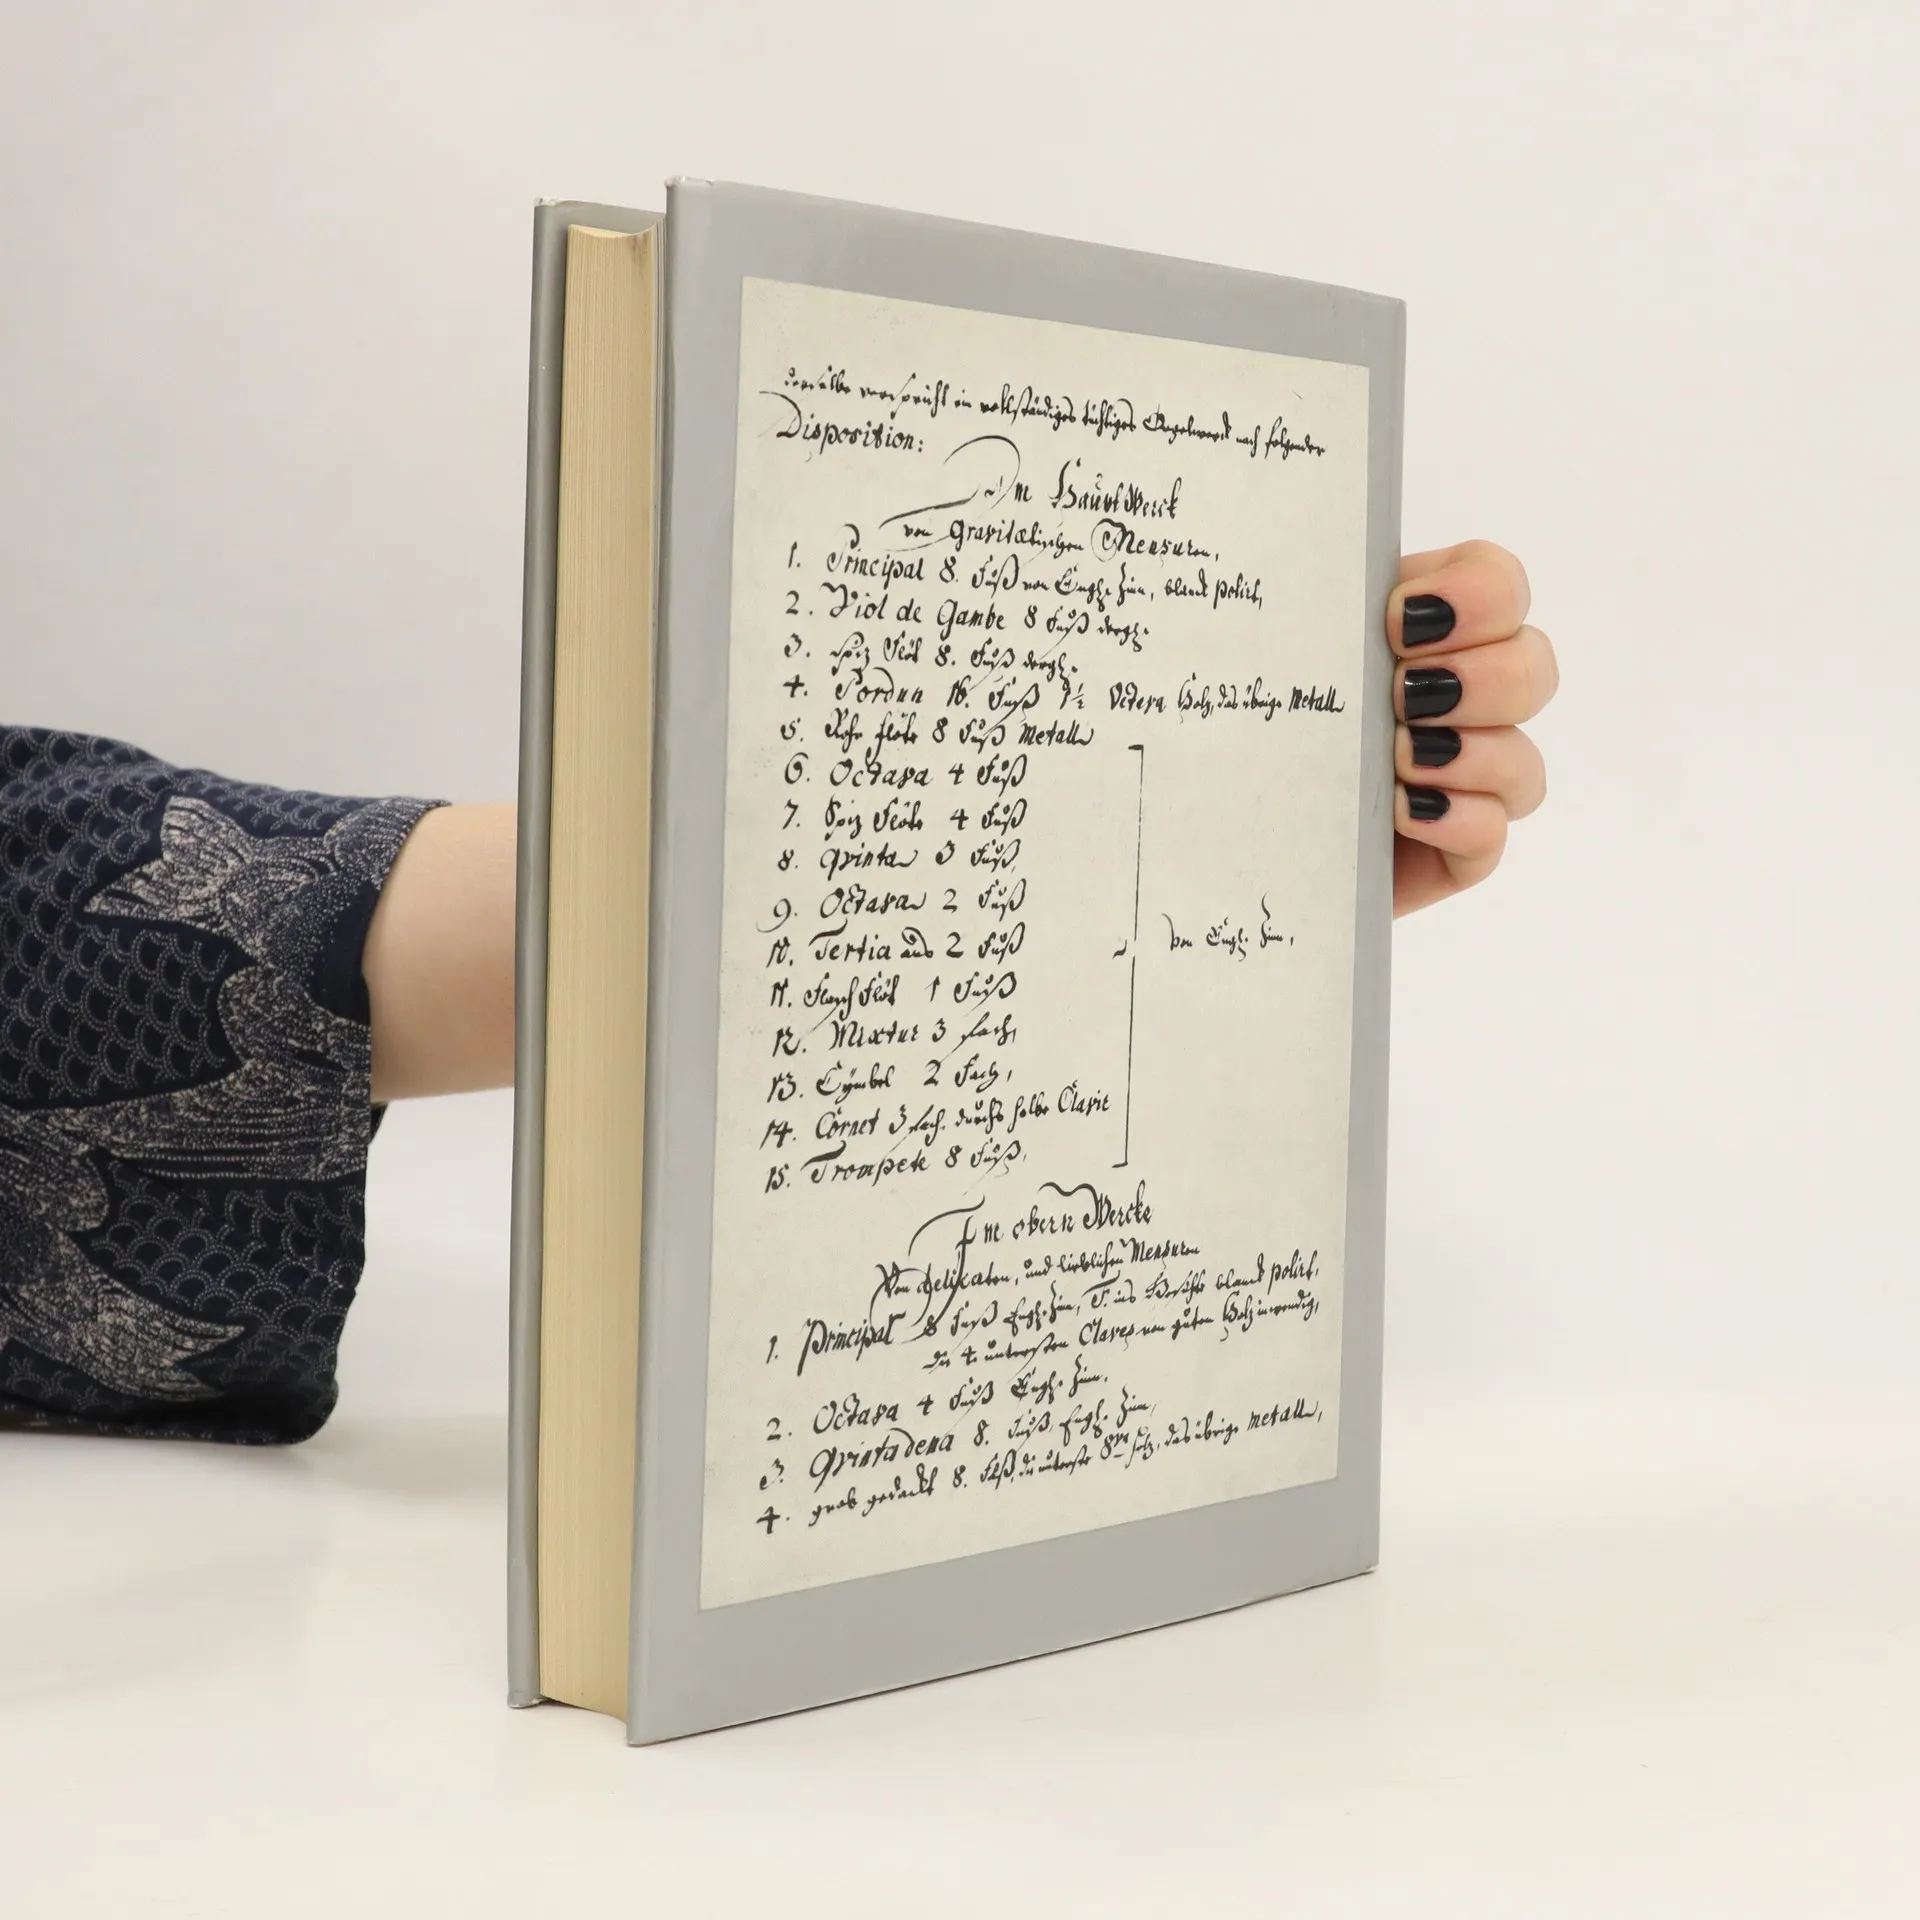 derselbe verspricht ein vollständiges tüchtiges Orgelwerck nach folgender
Disposition:
Im HaubtWerck
von Gravitætischen Mensuren,
1. Principal 8. Fuß von Engl. Zinn, blanck polirt,
2. Viol de Gambe 8 Fuß dergl.
3. Spiz Flöt 8. Fuß dergl.
4. Pordun 16. Fuß 1½ Octava Holz, das übrige Metall
5. Rohr flöte 8 Fuß Metall
6. Octava 4 Fuß
7. Spiz Flöte 4 Fuß
8. Qvinta 3 Fuß,
9. Octava 2 Fuß
10. Tertia aus 2 Fuß
11. FlaschFlöt 1 Fuß
12. Mixtur 3 fach,
13. Cymbel 2 Fach,
14. Cornet 3 fach. durchs halbe Clavir
15. Trompete 8 Fuß,
von Engl. Zinn,
Im obern Wercke
Von delicaten, und lieblichen Mensuren
1. Principal 8 Fuß Engl. Zinn, ins Gesichte blanck polirt,
die 4. untersten Claves von guten Holz inwendig,
2. Octava 4 Fuß Engl. Zinn,
3. Qvintadena 8. Fuß, Engl. Zinn,
4. grob gedackt 8. Fuß, die unterste 8ve Holz, das übrige Metall,